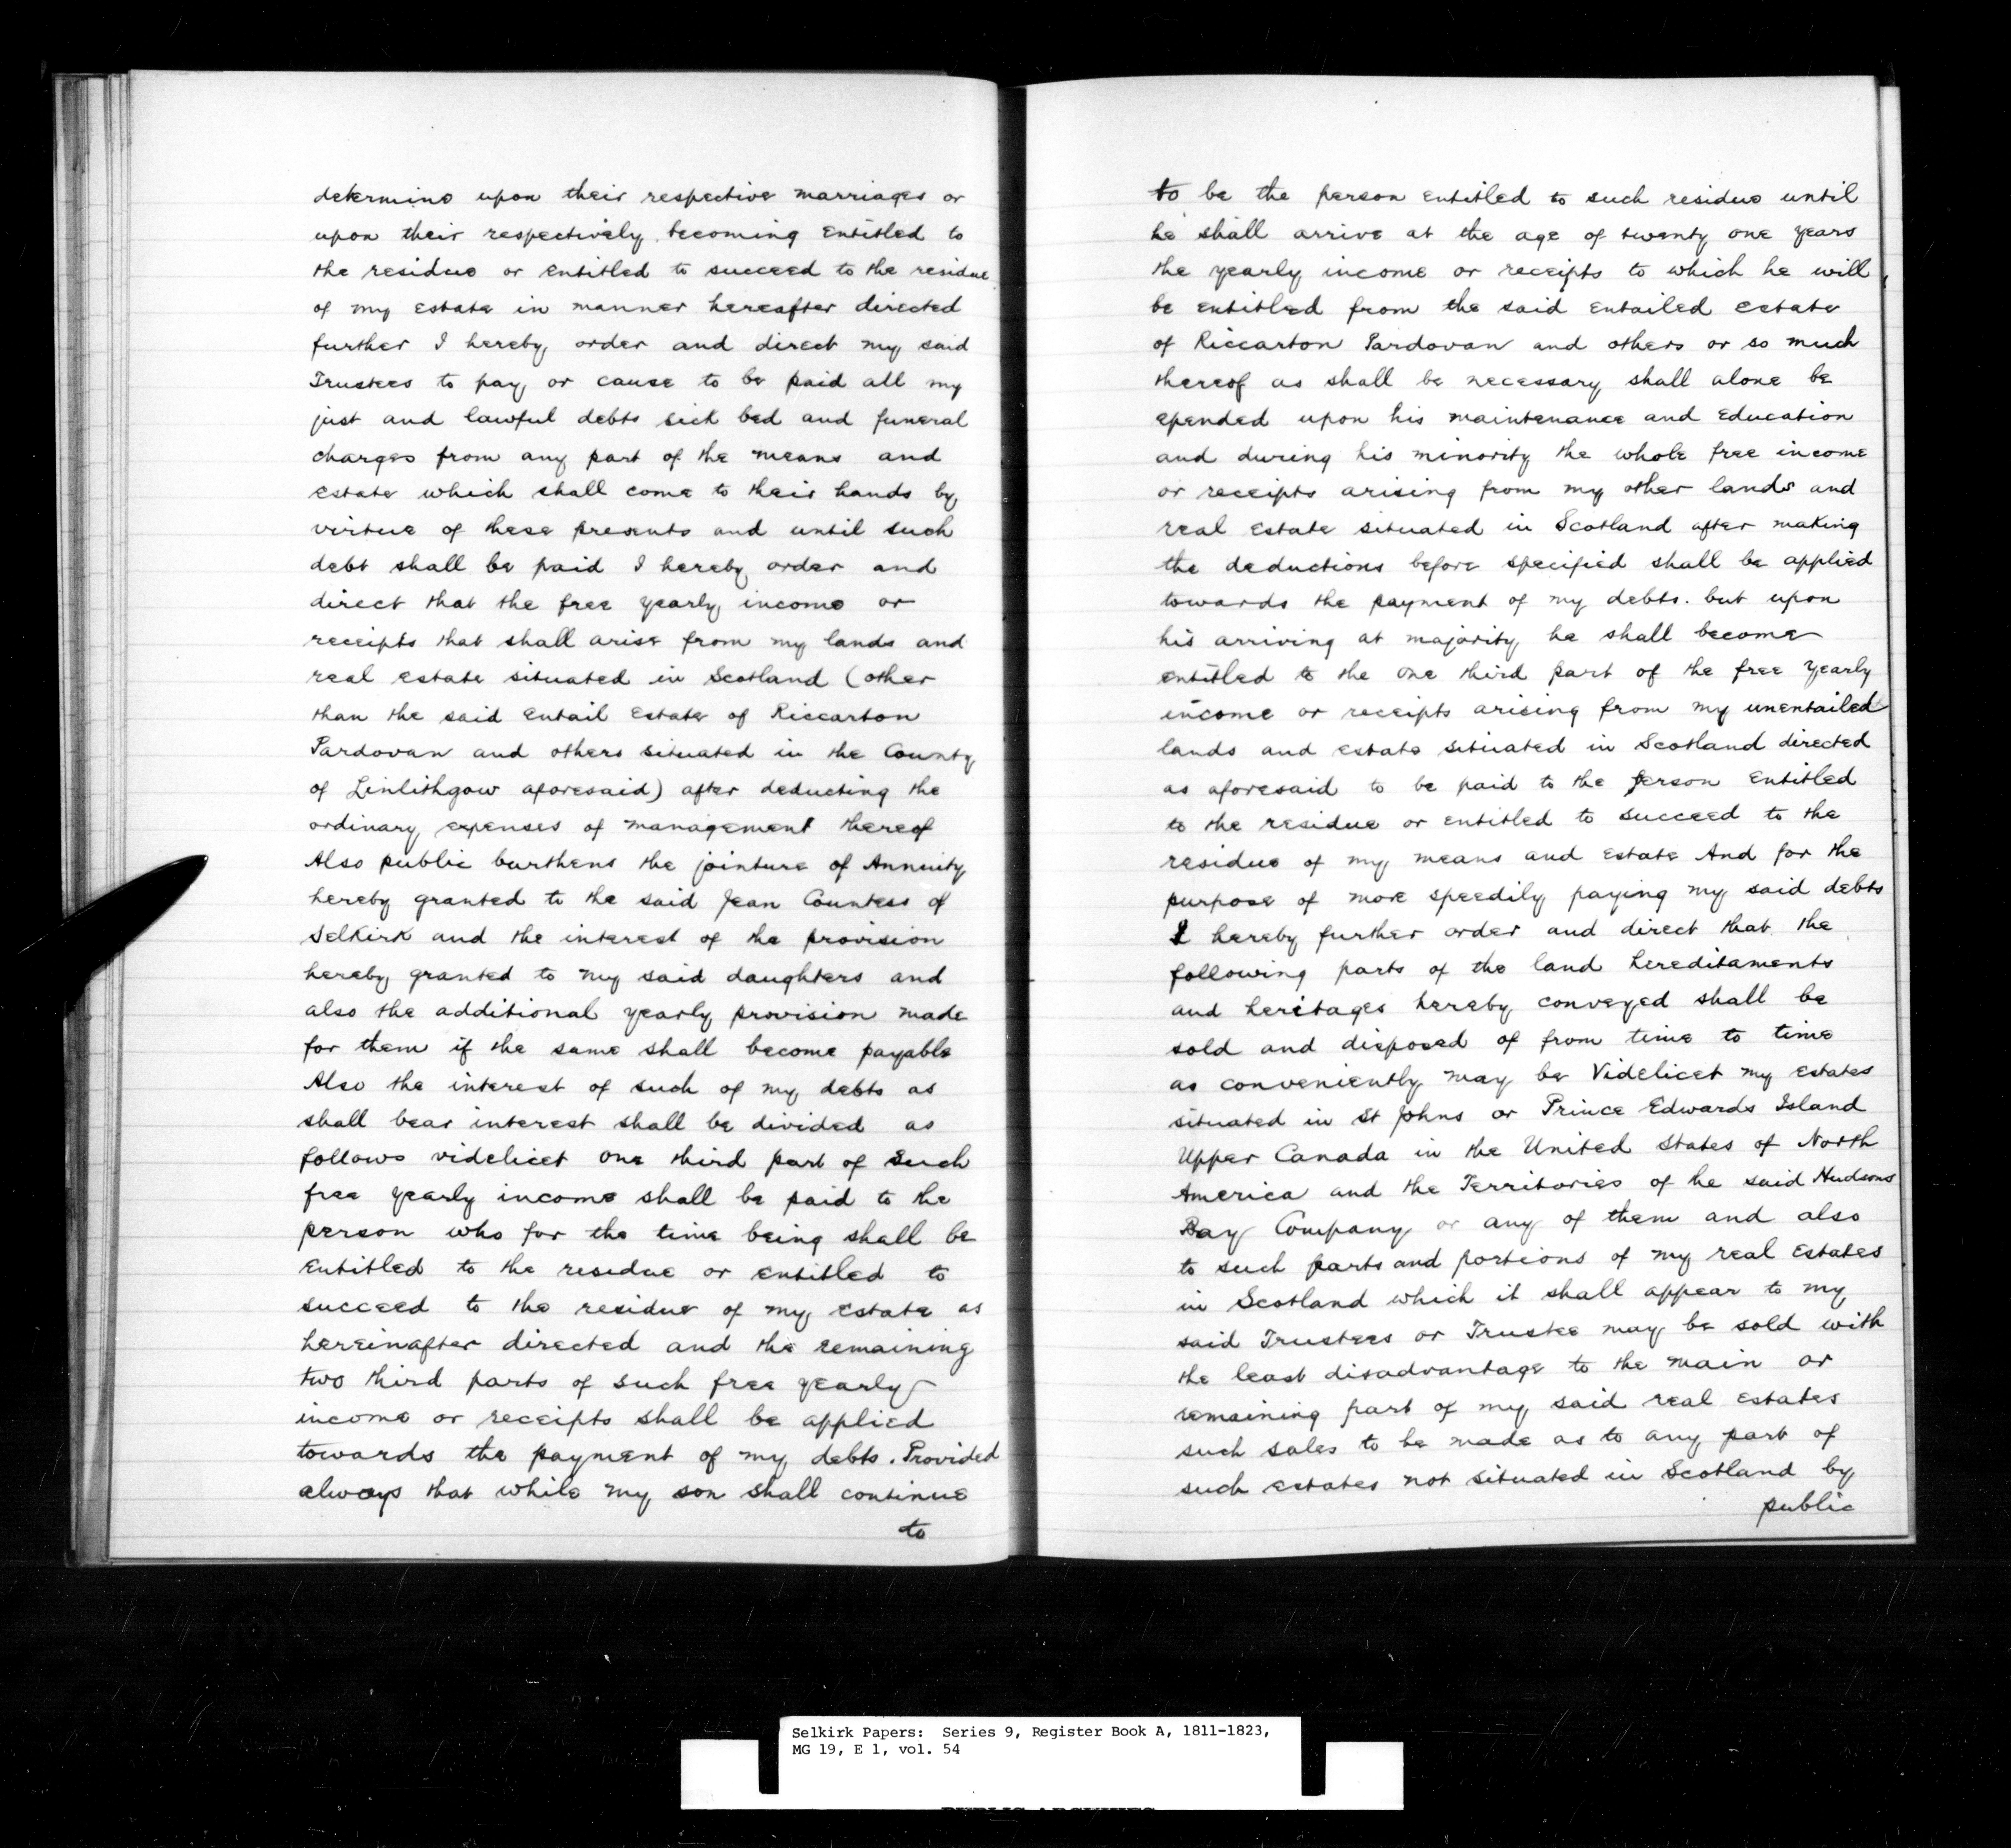 determine upon their respective marriages or
upon their respectively becoming entitled to
the residue or entitled to succeed to the residue
of my estate in manner hereafter directed
further I hereby order and direct my said
Trustees to pay or cause to be paid all my
just and lawful debts sick bed and funeral
charges from any part of the means and
estate which shall come to their hands by
virtue of these presents and until such
debt shall be paid I hereby order and
direct that the free yearly income or
receipts that shall arise from my lands and
real estate situated in Scotland (other
than the said Entail Estate of Riccarton
Pardovan and others situated in the County
of Linlithgow aforesaid) after deducting the
ordinary expenses of management thereof
Also public burthens the jointure of Annuity
hereby granted to the said Jean Countess of
Selkirk and the interest of the provision
hereby granted to my said daughters and
also the additional yearly provision made
for them if the same shall become payable
Also the interest of such of my debts as
shall bear interest shall be divided as
follows videlicet one third part of such
free yearly income shall be paid to the
person who for the time being shall be
entitled to the residue or entitled to
succeed to the residue of my estate as
hereinafter directed and the remaining
two third parts of such free yearly
income or receipts shall be applied
towards the payment of my debts. Provided
always that while my son shall continue
to
to be the person entitled to such residue until
he shall arrive at the age of twenty one years
the yearly income or receipts to which he will
be entitled from the said entailed estate
of Riccarton Pardovan and others or so much
thereof as shall be necessary shall alone be
epended upon his maintenance and Education
and during his minority the whole free income
or receipts arising from my other lands and
real estate situated in Scotland after making
the deductions before specified shall be applied
towards the payment of my debts. but upon
his arriving at majority he shall become
entitled to the one third part of the free yearly
income or receipts arising from my unentailed
lands and estate situated in Scotland directed
as aforesaid to be paid to the person entitled
to the residue or entitled to succeed to the
residue of my means and estate And for the
purpose of more speedily paying my said debts
I hereby further order and direct that the
following parts of the land hereditaments
and heritages hereby conveyed shall be
sold and disposed of from time to time
as conveniently may be Videlicet my estates
situated in St Johns or Prince Edwards Island
Upper Canada in the United States of North
America and the Territories of he said Hudsons
Bay Company or any of them and also
to such parts and portions of my real estates
in Scotland which it shall appear to my
said Trustees or Trustee may be sold with
the least disadvantage to the main or
remaining part of my said real estates
such sales to be made as to any part of
such estates not situated in Scotland by
public
Selkirk Papers: Series 9, Register Book A, 1811-1823,
MG 19, E 1, vol. 54